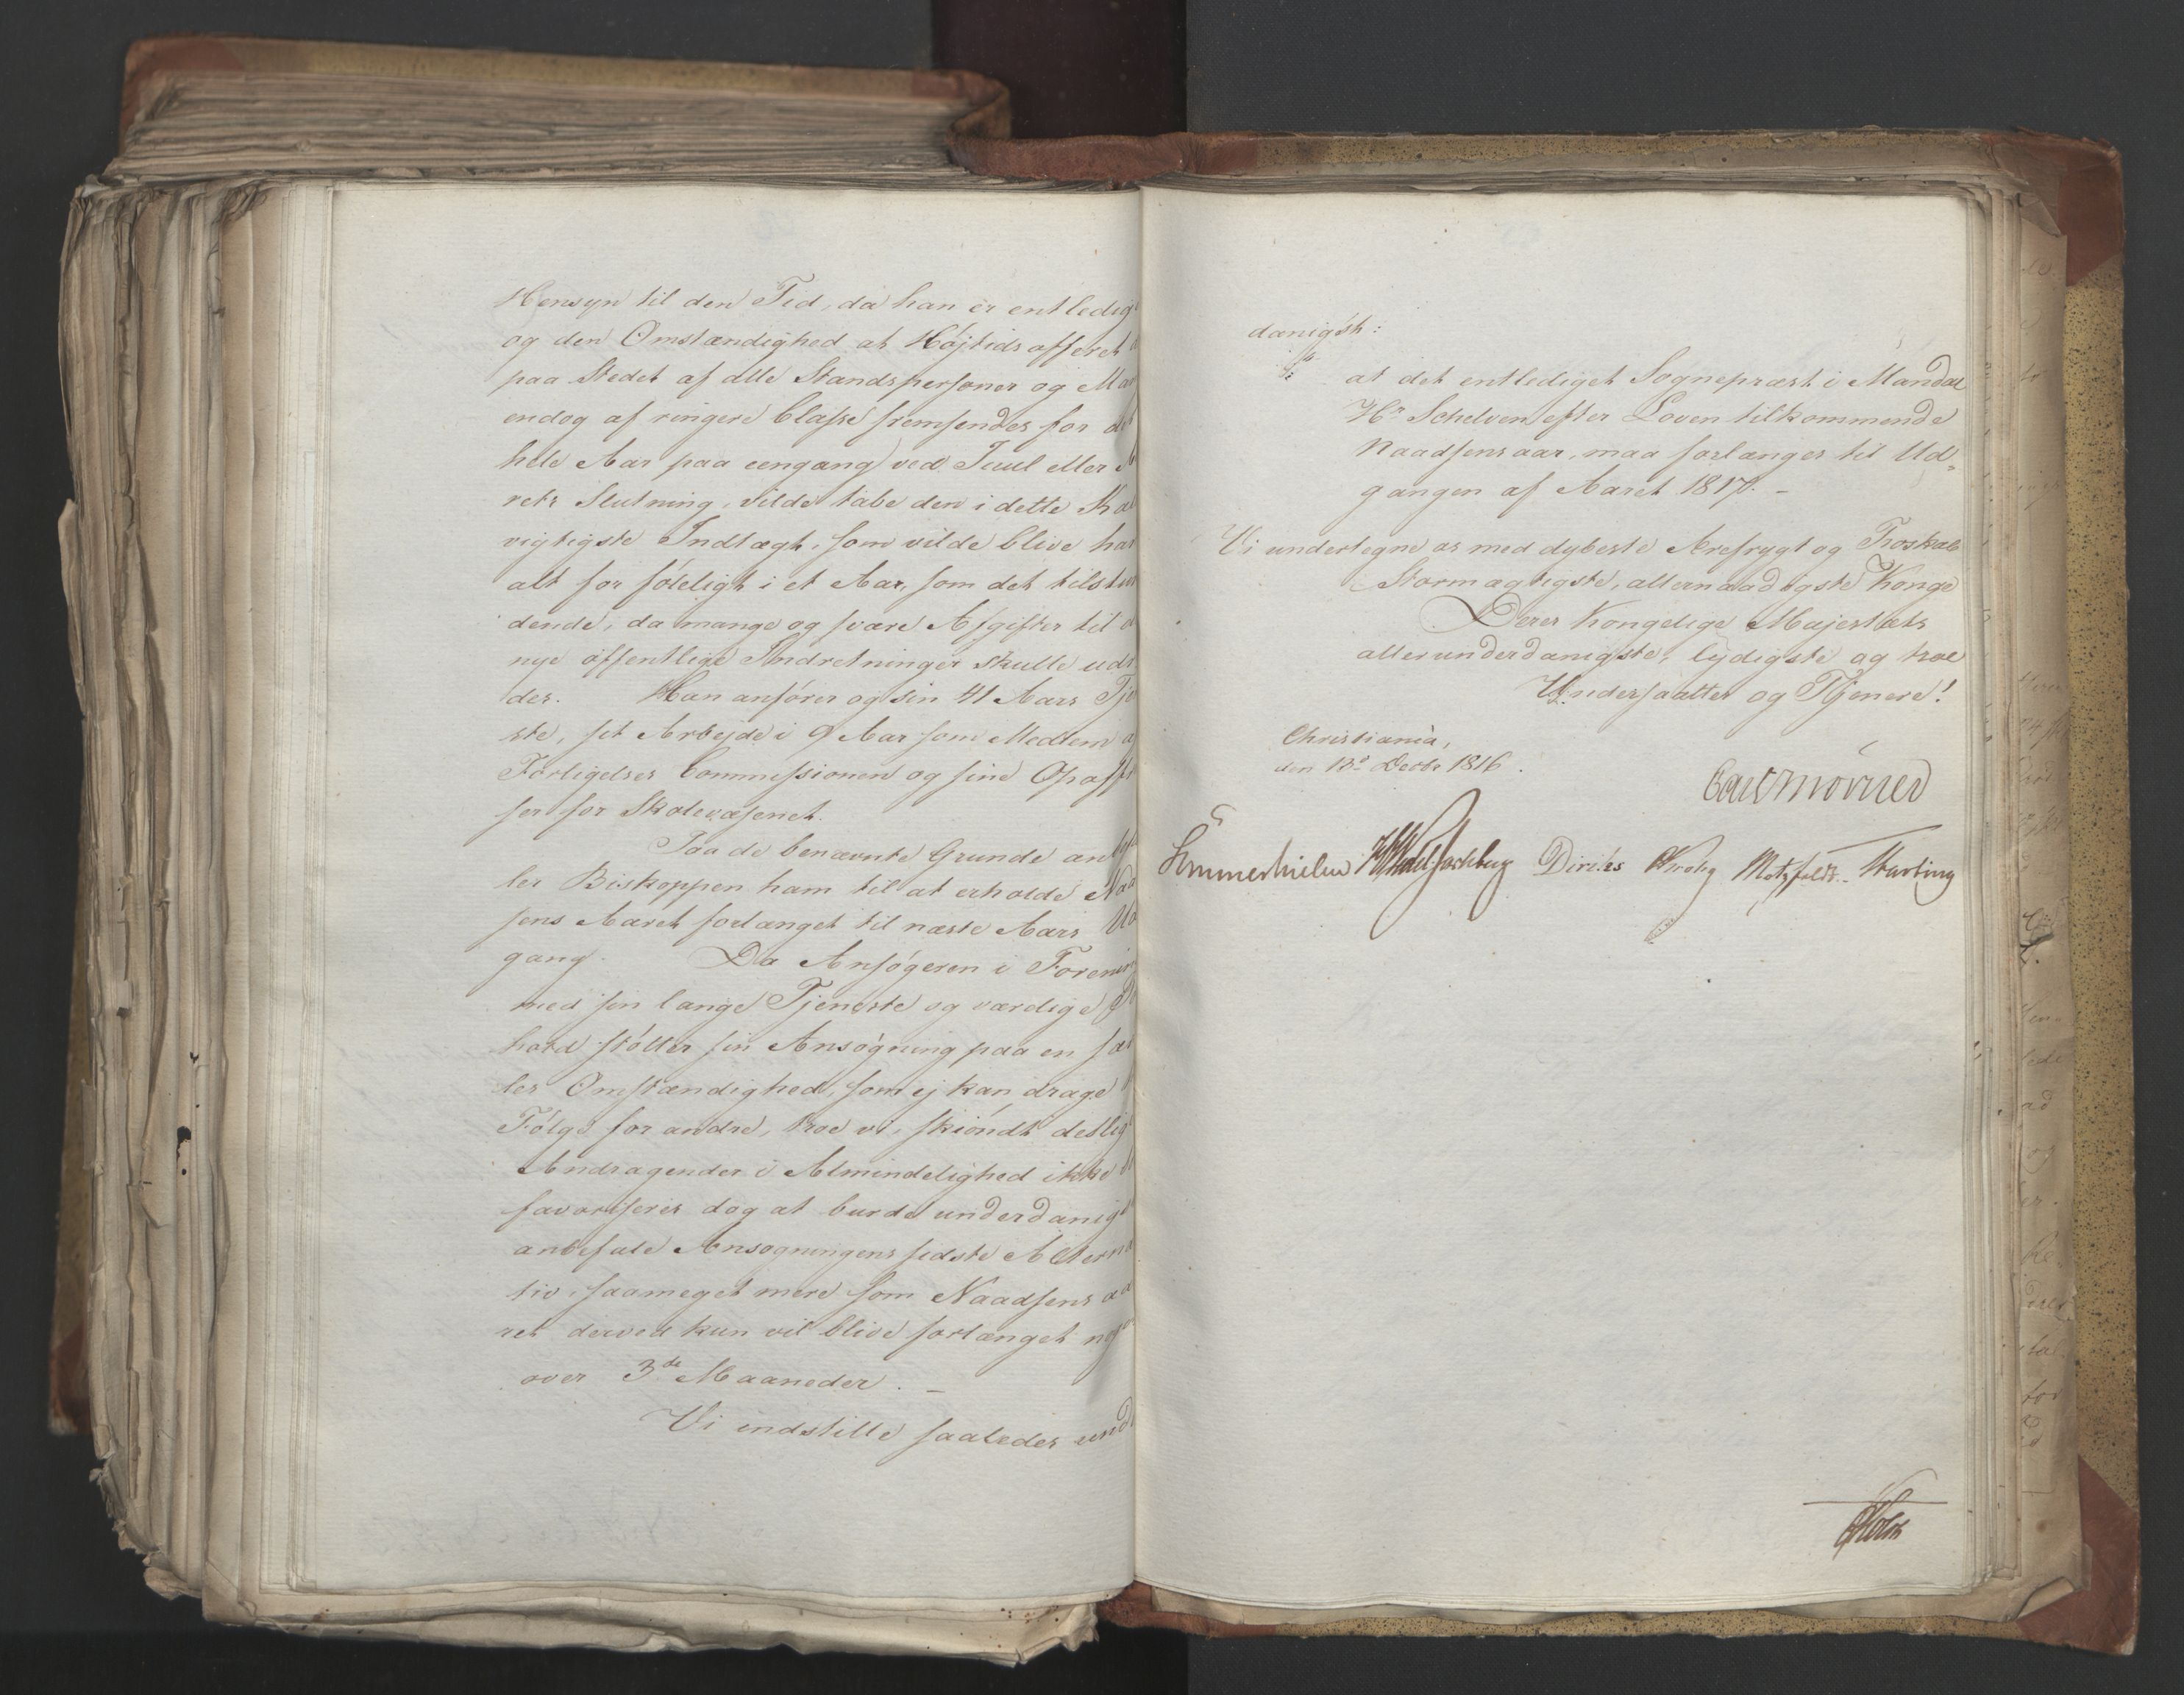 Hensyn til den Tid, da han er entledig
og den Omstændighed at Højtidsofferet
paa Stedet af alle Standspersoner og Man
endog af ringere Classe fremsendes for det
hele Aar paa eengang ved Juul eller Aa
rets Slutning, vilde tabe den i dette Kal
vigtigste Indtægt, som vilde blive ham
alt for føleligt i et Aar, som det tilstun
dende, da mange og svære Afgifter til d
nye offentlige Indretninger skulle uds
des. Han anfører og sin 41 Aars Tje
ste, sit Arbejde i 9 Aar som Medlem af
Forligelses Commissionen og sine Opoffrel
ser for Skolevæsenet.
Paa de benævnte Grunde anbefa
ler Biskoppen ham til at erholde Naa
sens Aaret forlænget til næste Aars Ud
gang. Da Ansøgeren i Forening
med sin lange Tjeneste og værdige
hold støtter sin Ansøgning paa en sær
les Omstændighed, som ej kan drage
Følge for andre, troe vi, skiøndt deslige
Andragender i Almindelighed ikke
favoriseres dog at burde underdanigst
anbefale Ansøgningens sidste Alterna
tiv, saameget mere som Naadsens aa
ret derved kun vil blive forlænget noget
over 3de Maaneder. –
Vi indstille saaledes und
danigst:
at det entlediget Sognepræst i Mandal
Hr Schelven efter Loven tilkommende
Naadsensaar, maa forlænges til Ud-
gangen af Aaret 1817. –
Vi undertegne os med dybeste Ærefrygt og Troskab
Stormægtigste, allernaadigste Konge
Deres Kongelige Majestæts
allerunderdanigste, lydigste og troe
Undersaatter og Tjenere!
Christiania,
den 13de Decbr 1816.
Carl Mörner
Sommerhielm Diriks Krohg Motzfeldt. Harbing
Holst